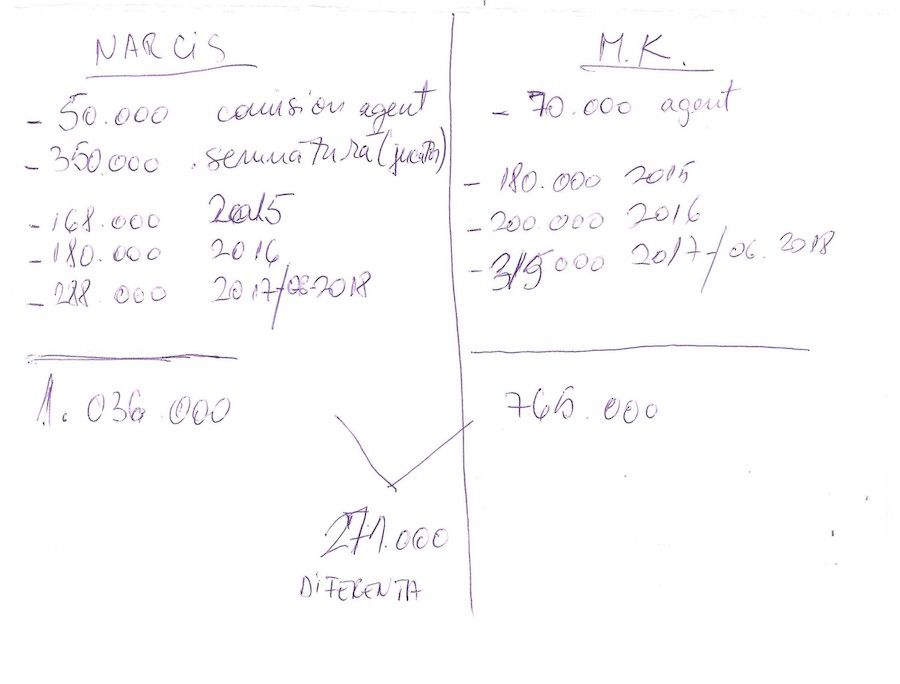 NARCIS
- 50.000 comision agent
- 350.000 semnatura (jucator)
- 168.000 2015
- 180.000 2016
- 288.000 2017/06-2018
1.036.000
M.K.
- 70.000 agent
- 180.000 2015
- 200.000 2016
- 315 000 2017/06.2018
765.000
271.000
DIFERENTA